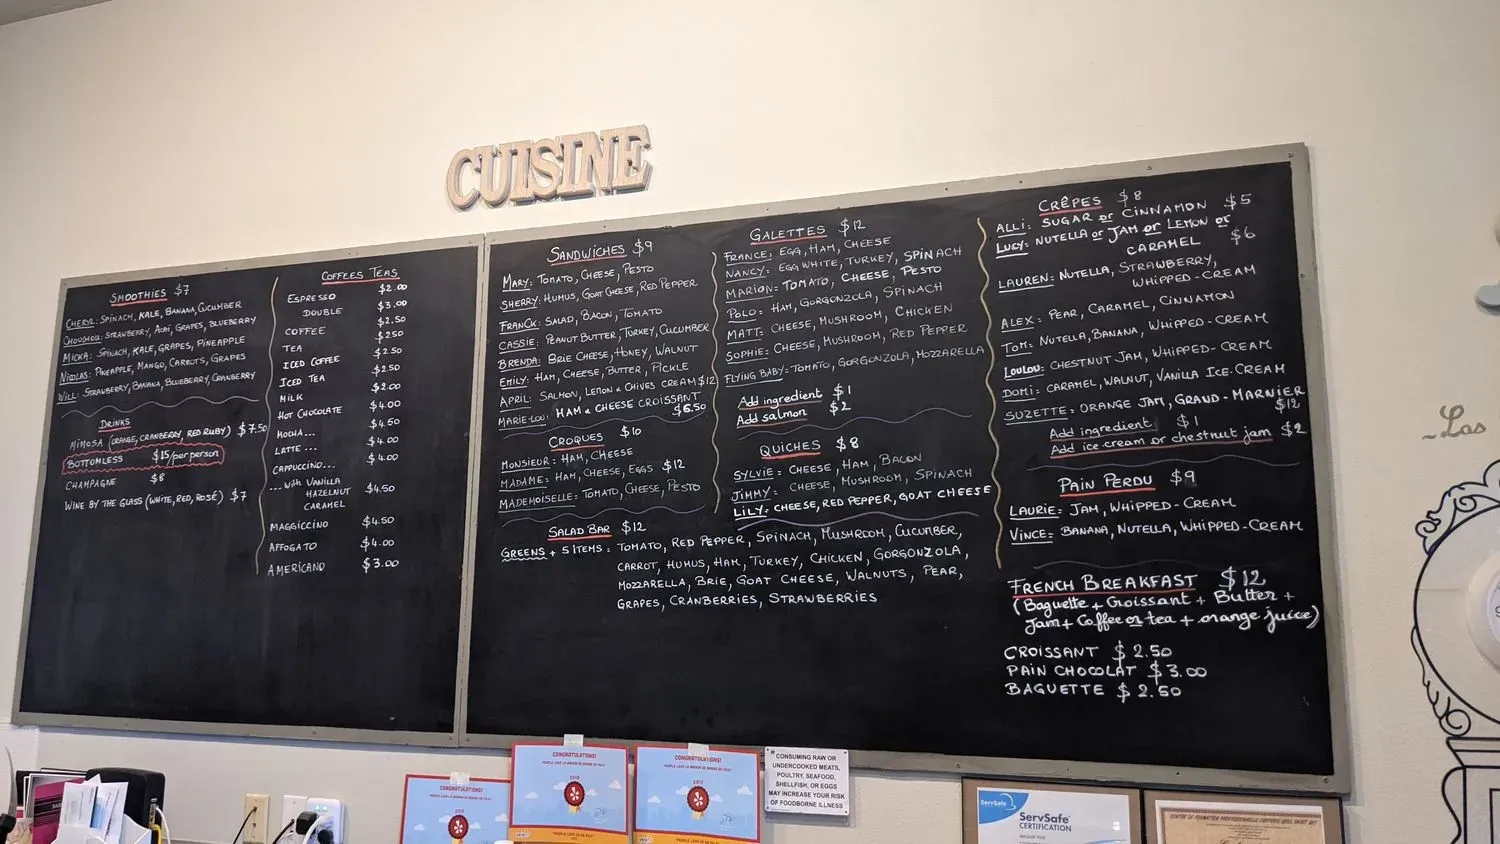 CUISINE
SMOOTHIES $7
CHERYL: SPINACH, KALE, BANANA, CUCUMBER
CHOUCHOU: STRAWBERRY, ACAÏ, GRAPES, BLUEBERRY
MICKA: SPINACH, KALE, GRAPES, PINEAPPLE
NICOLAS: PINEAPPLE, MANGO, CARROTS, GRAPES
WILL: STRAWBERRY, BANANA, BLUEBERRY, CRANBERRY
DRINKS
MIMOSA (ORANGE, CRANBERRY, RED RUBY) $7.50
BOTTOMLESS $15/per person
CHAMPAGNE $8
WINE BY THE GLASS (WHITE, RED, ROSÉ) $7
COFFEES TEAS
ESPRESSO $2.00
DOUBLE $3.00
COFFEE $2.50
TEA $2.50
ICED COFFEE $2.50
ICED TEA $2.50
MILK $2.00
HOT CHOCOLATE $4.00
MOCHA... $4.50
LATTE... $4.00
CAPPUCCINO... $4.00
...with VANILLA
HAZELNUT $4.50
CARAMEL
MAGGICCINO $4.50
AFFOGATO $4.00
AMERICANO $3.00
SANDWICHES $9
MARY: TOMATO, CHEESE, PESTO
SHERRY: HUMUS, GOAT CHEESE, RED PEPPER
FRANCK: SALAD, BACON, TOMATO
CASSIE: PEANUT BUTTER, TURKEY, CUCUMBER
BRENDA: BRIE CHEESE, HONEY, WALNUT
EMILY: HAM, CHEESE, BUTTER, PICKLE
APRIL: SALMON, LEMON & CHIVES CREAM $12
MARIE-LOU: HAM & CHEESE CROISSANT
$6.50
CROQUES $10
MONSIEUR: HAM, CHEESE
MADAME: HAM, CHEESE, EGGS $12
MADEMOISELLE: TOMATO, CHEESE, PESTO
SALAD BAR $12
GREENS + 5 ITEMS: TOMATO, RED PEPPER, SPINACH, MUSHROOM, CUCUMBER,
CARROT, HUMUS, HAM, TURKEY, CHICKEN, GORGONZOLA,
MOZZARELLA, BRIE, GOAT CHEESE, WALNUTS, PEAR,
GRAPES, CRANBERRIES, STRAWBERRIES
GALETTES $12
FRANCE: EGG, HAM, CHEESE
NANCY: EGG WHITE, TURKEY, SPINACH
MARION: TOMATO, CHEESE, PESTO
POLO: HAM, GORGONZOLA, SPINACH
MATT: CHEESE, MUSHROOM, CHICKEN
SOPHIE: CHEESE, MUSHROOM, RED PEPPER
FLYING BABY: TOMATO, GORGONZOLA, MOZZARELLA
Add ingredient $1
Add salmon $2
QUICHES $8
SYLVIE: CHEESE, HAM, BACON
JIMMY: CHEESE, MUSHROOM, SPINACH
LILY: CHEESE, RED PEPPER, GOAT CHEESE
CRÊPES $8
ALLI: SUGAR or CINNAMON $5
LUCY: NUTELLA or JAM or LEMON or
CARAMEL $6
LAUREN: NUTELLA, STRAWBERRY,
WHIPPED-CREAM
ALEX: PEAR, CARAMEL, CINNAMON
TOM: NUTELLA, BANANA, WHIPPED-CREAM
LOULOU: CHESTNUT JAM, WHIPPED-CREAM
DOMI: CARAMEL, WALNUT, VANILLA ICE-CREAM
SUZETTE: ORANGE JAM, GRAND-MARNIER
$12
Add ingredient $1
Add ice cream or chestnut jam $2
PAIN PERDU $9
LAURIE: JAM, WHIPPED-CREAM
VINCE: BANANA, NUTELLA, WHIPPED-CREAM
FRENCH BREAKFAST $12
(Baguette + Croissant + Butter +
Jam + Coffee or tea + orange juice)
CROISSANT $2.50
PAIN CHOCOLAT $3.00
BAGUETTE $2.50
~Las
CONGRATULATIONS!
CONGRATULATIONS!
CONGRATULATIONS!
"CONSUMING RAW OR
UNDERCOOKED MEATS,
POULTRY, SEAFOOD,
SHELLFISH, OR EGGS
MAY INCREASE YOUR RISK
OF FOODBORNE ILLNESS
ServSafe
ServSafe®
CERTIFICATION